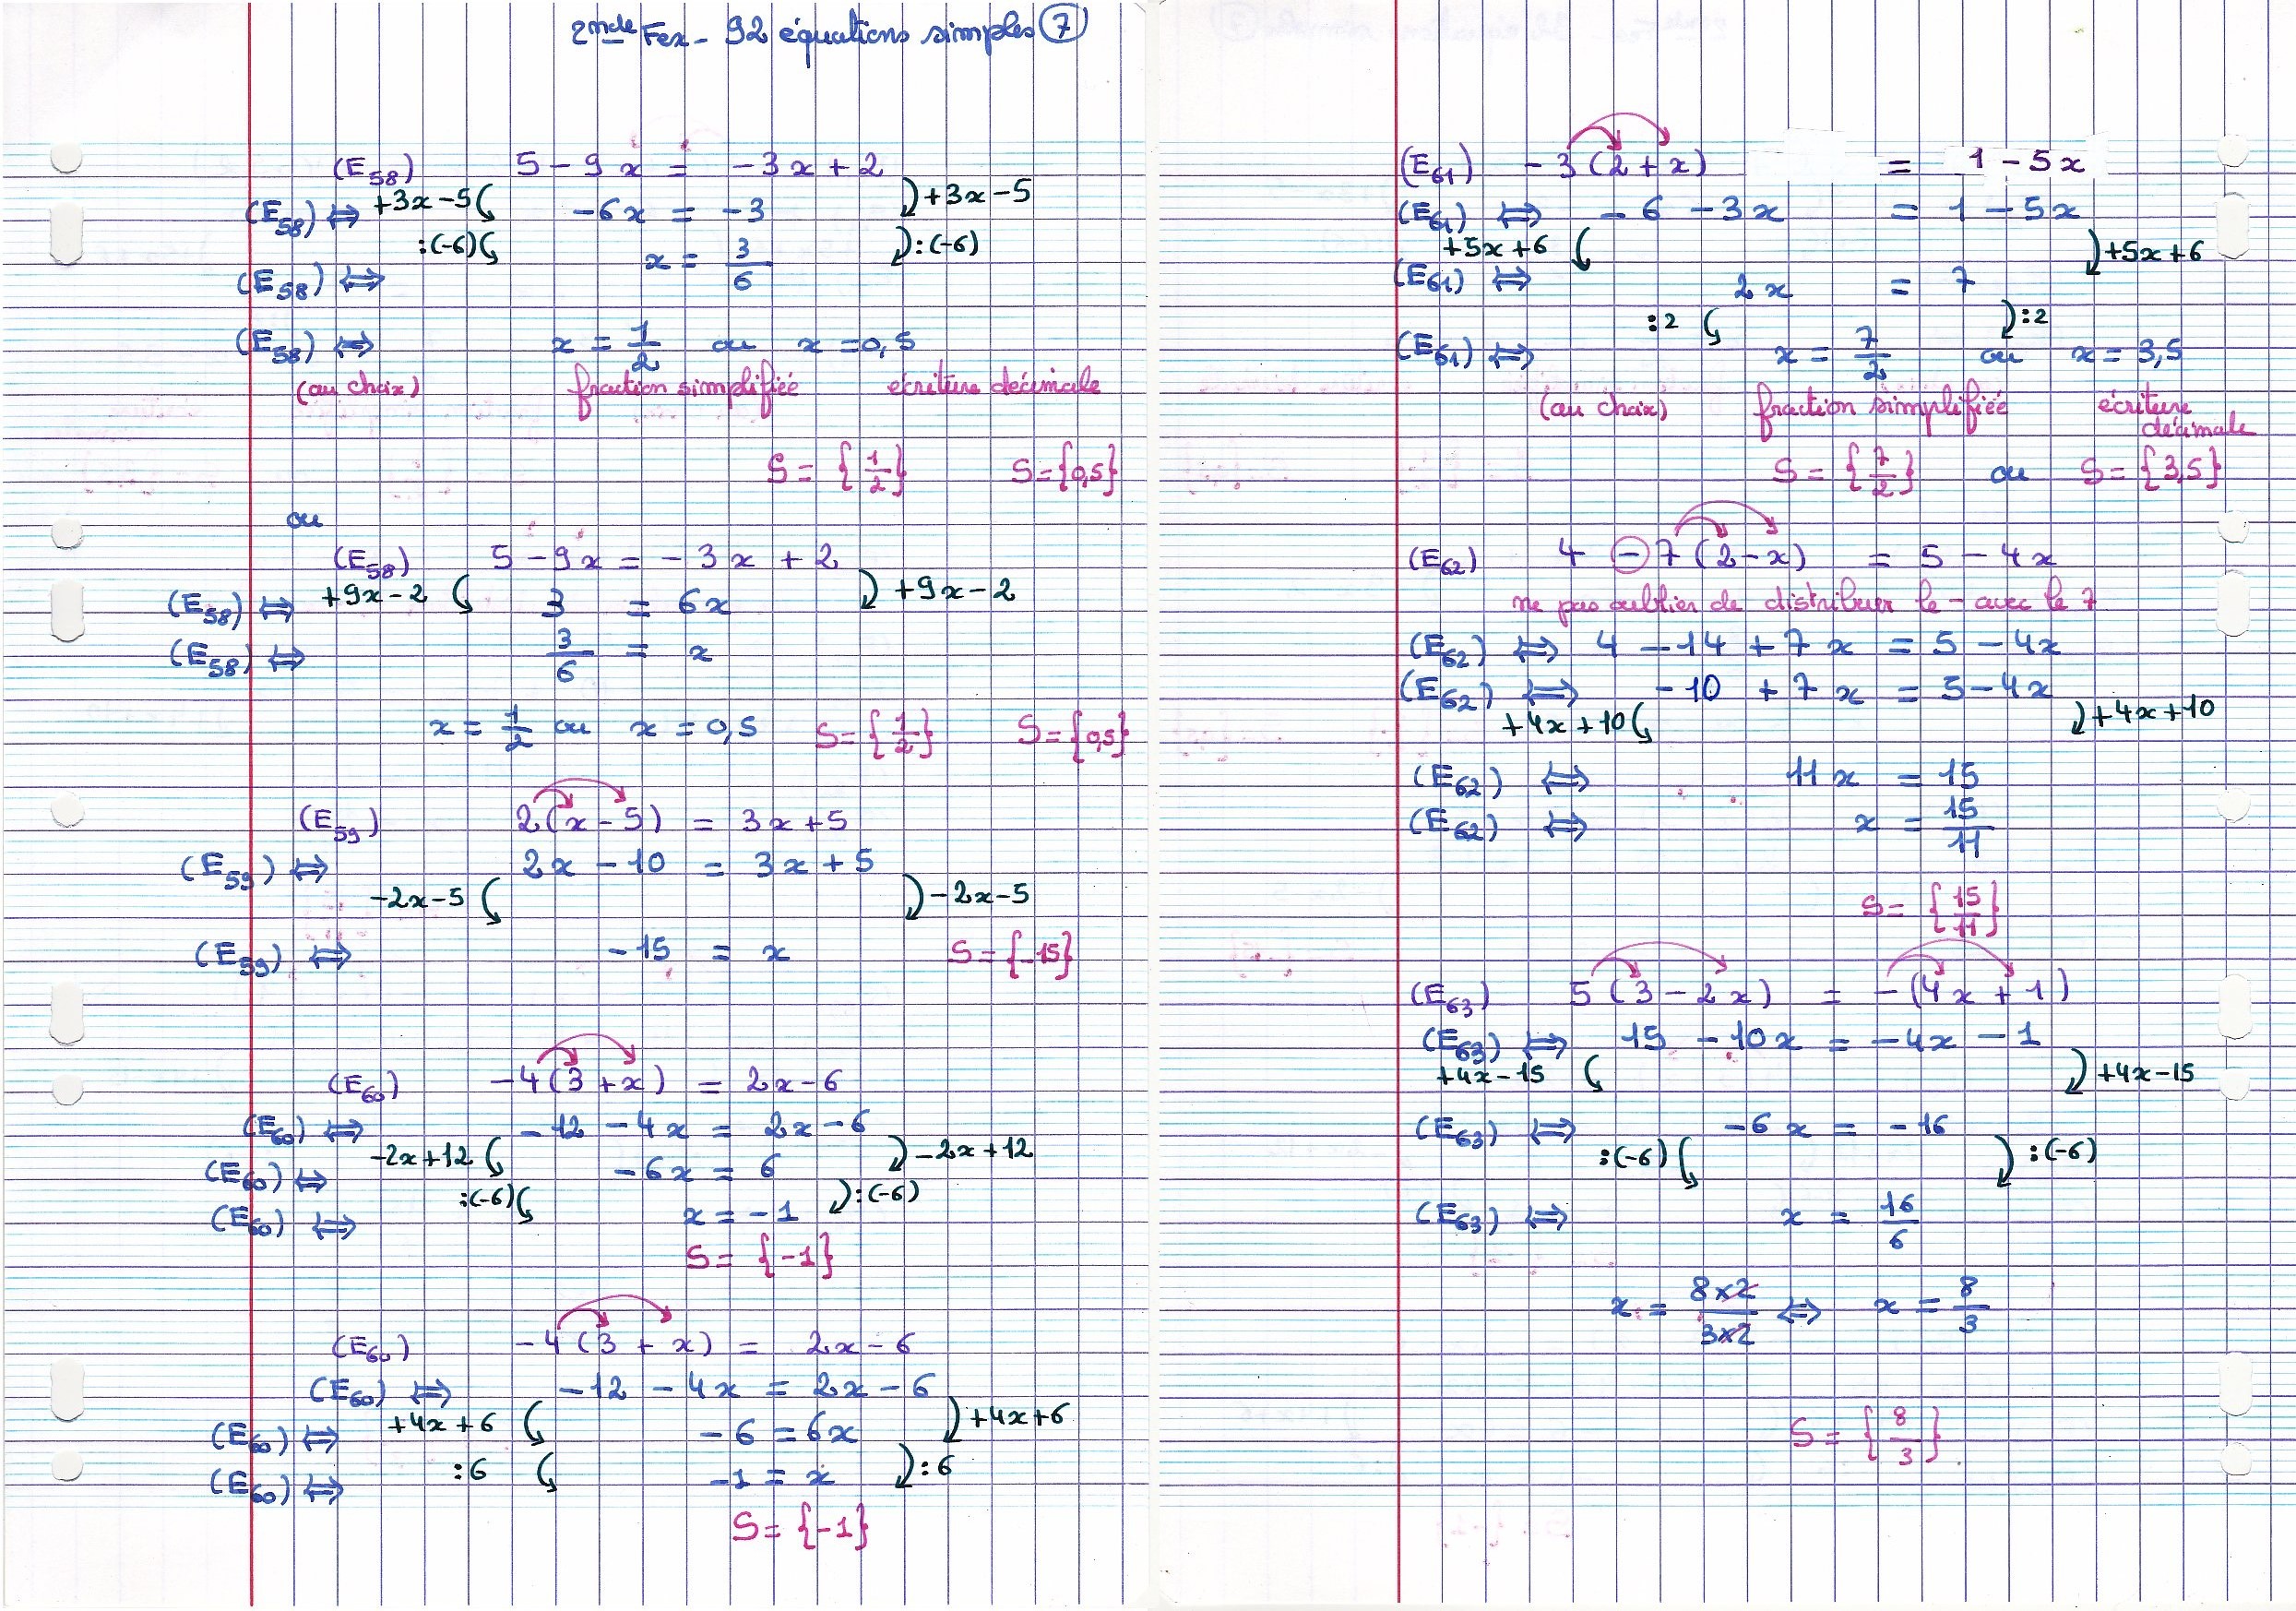 2nde Fex - 92 équations simples 7
(E58) 5 - 9x = -3x + 2
+3x-5 +3x-5
(E58) ⟺ -6x = -3
:(-6) :(-6)
(E58) ⟺ x = 3/6
(E58) ⟺ x = 1/2 ou x = 0,5
(au choix) fraction simplifiée écriture décimale
S = {1/2} S = {0,5}
ou
(E58) 5 - 9x = -3x + 2
+9x-2 +9x-2
(E58) ⟺ 3 = 6x
(E58) ⟺ 3/6 = x
x = 1/2 ou x = 0,5 S = {1/2} S = {0,5}
(E59) 2(x-5) = 3x+5
(E59) ⟺ 2x - 10 = 3x + 5
-2x-5 -2x-5
(E59) ⟺ -15 = x S = {-15}
(E60) -4(3+x) = 2x-6
(E60) ⟺ -12 - 4x = 2x-6
-2x+12 -2x+12
(E60) ⟺ -6x = 6
:(-6) :(-6)
(E60) ⟺ x = -1
S = {-1}
(E60) -4(3 + x) = 2x - 6
(E60) ⟺ -12 - 4x = 2x - 6
+4x+6 +4x+6
(E60) ⟺ -6 = 6x
:6 :6
(E60) ⟺ -1 = x
S = {-1}
(E61) -3(2+x) = 1 - 5x
(E61) ⟺ -6 - 3x = 1 - 5x
+5x+6 +5x+6
(E61) ⟺ 2x = 7
:2 :2
(E61) ⟺ x = 7/2 ou x = 3,5
(au choix) fraction simplifiée écriture
décimale
S = {7/2} ou S = {3,5}
(E62) 4 - 7(2-x) = 5 - 4x
ne pas oublier de distribuer le - avec le 7
(E62) ⟺ 4 - 14 + 7x = 5 - 4x
(E62) ⟺ -10 + 7x = 5 - 4x
+4x+10 +4x+10
(E62) ⟺ 11x = 15
(E62) ⟺ x = 15/11
S = {15/11}
(E63) 5(3-2x) = -(4x+1)
(E63) ⟺ 15 - 10x = -4x - 1
+4x-15 +4x-15
(E63) ⟺ -6x = -16
:(-6) :(-6)
(E63) ⟺ x = 16/6
x = 8×2/3×2 ⟺ x = 8/3
S = {8/3}